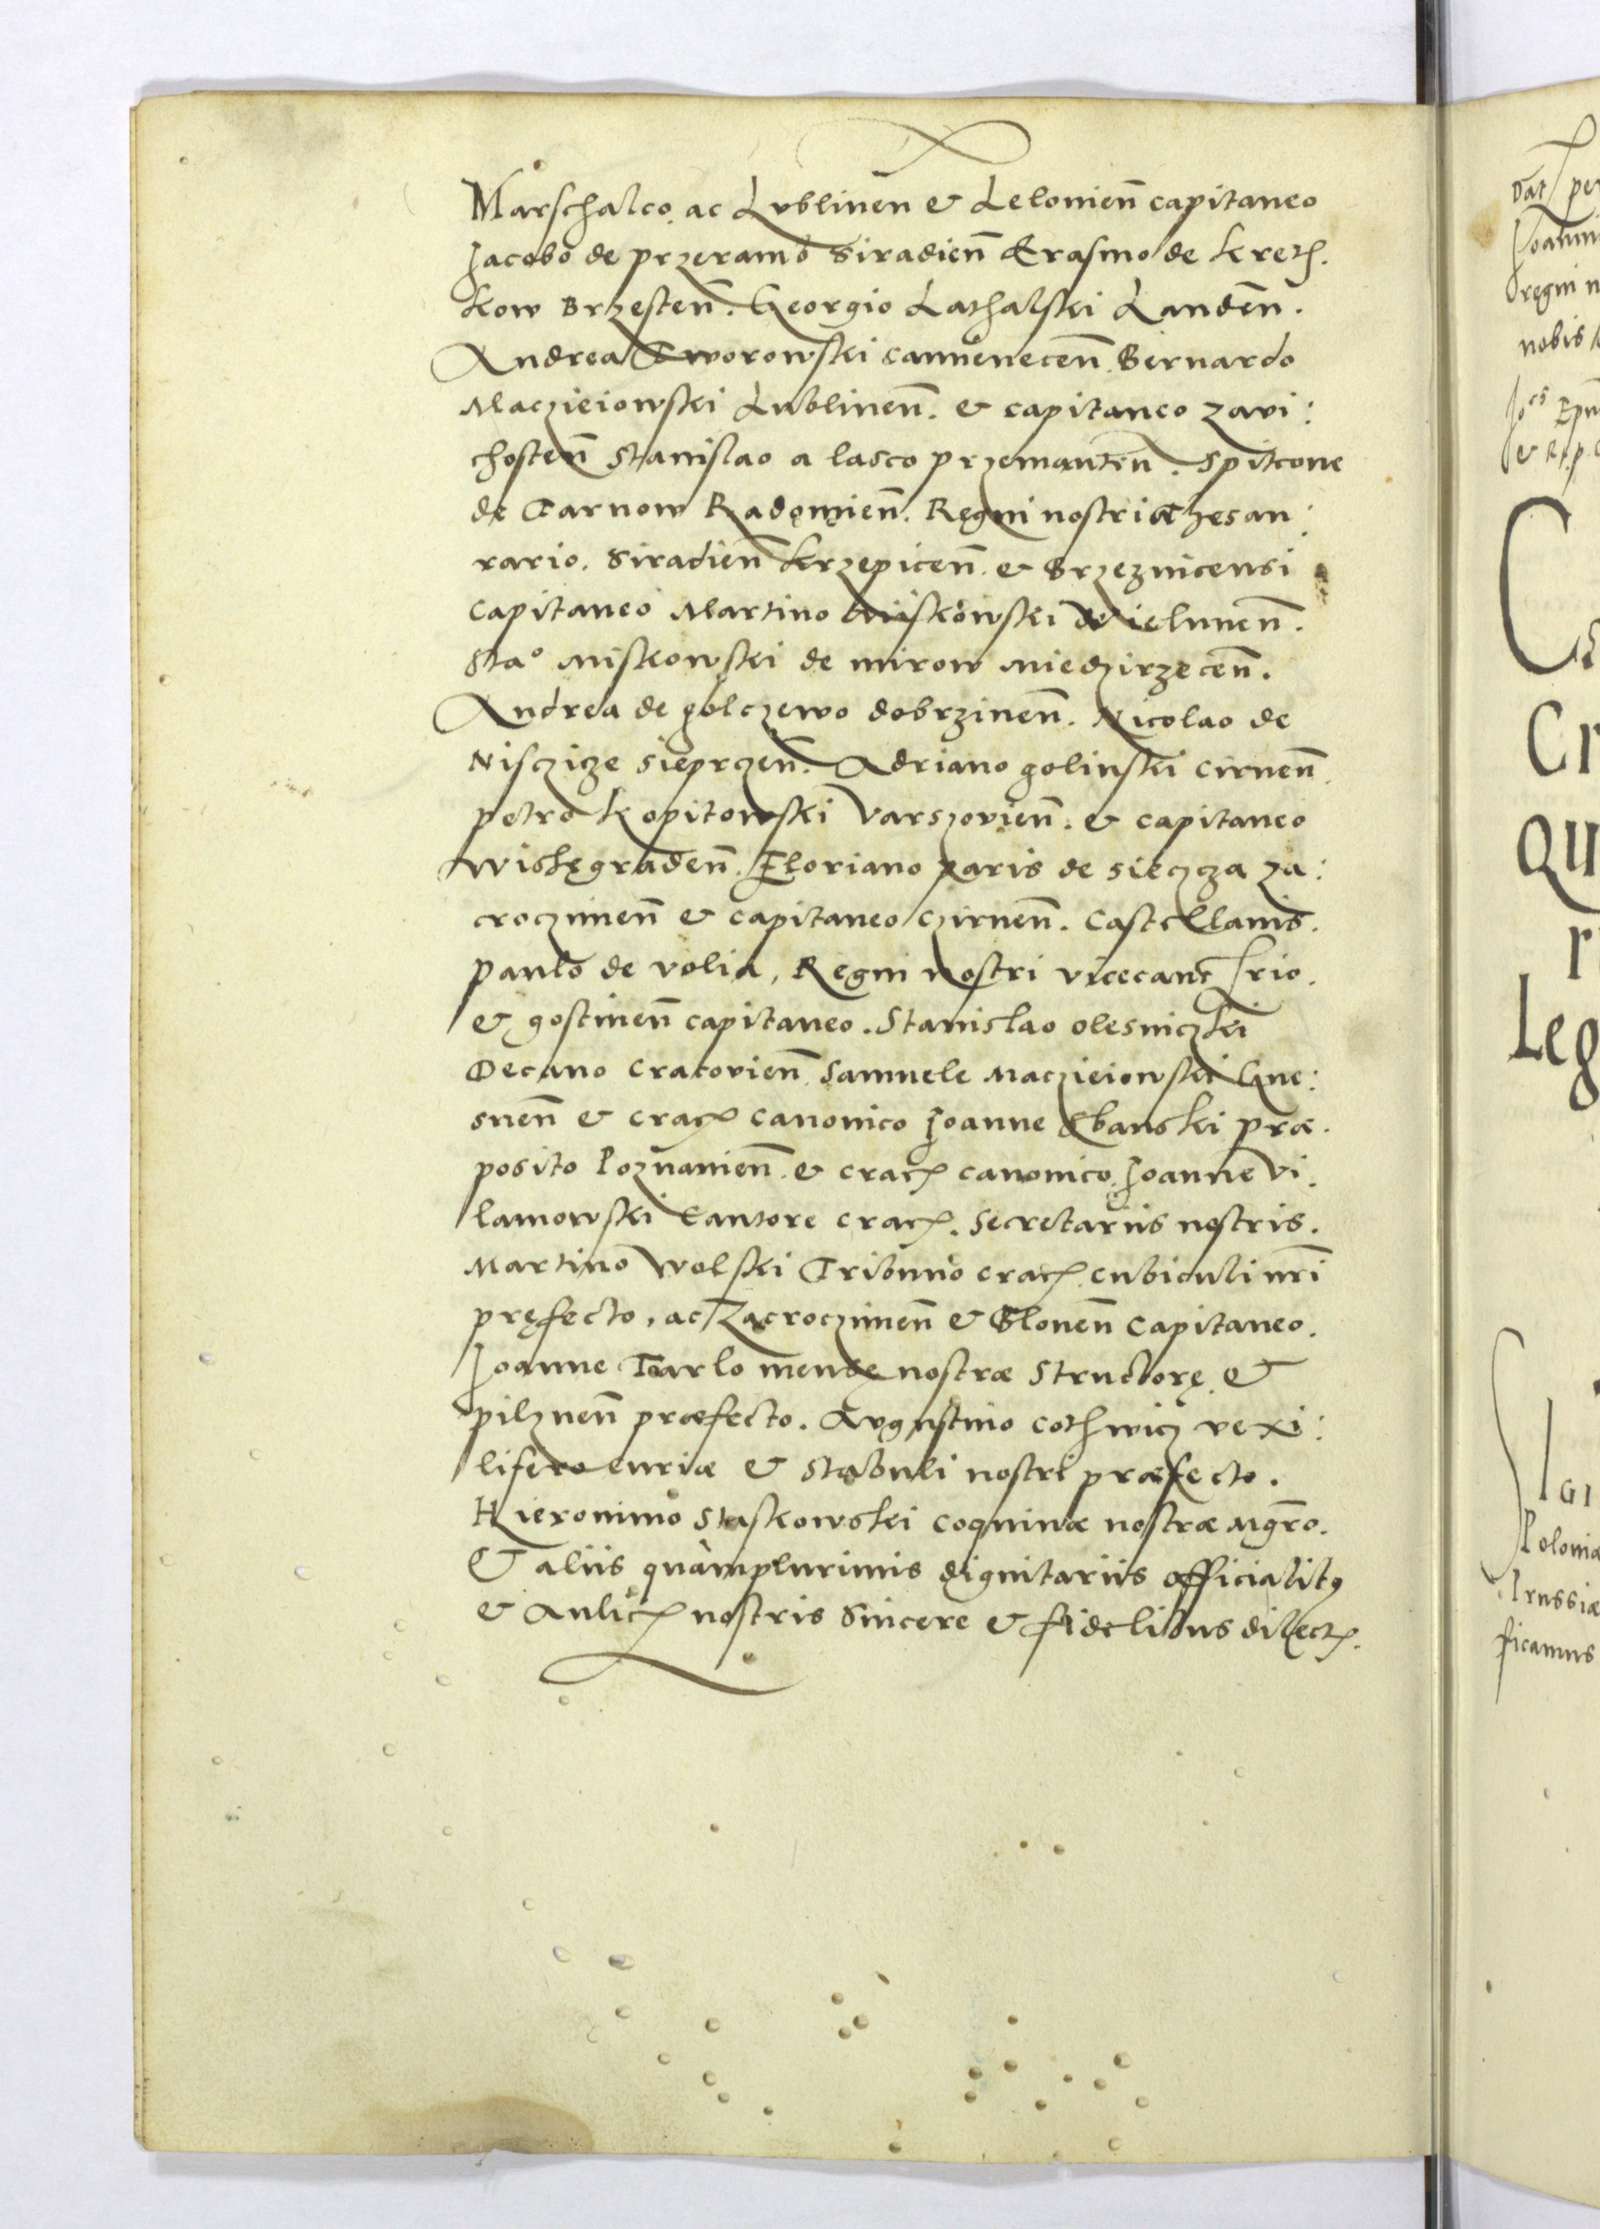 Marschalco, ac Lublinen & Lelonien̄ capitaneo
Jacobo de przeramb Siradien̄ Erasmo de Kreth.
kow Brzesten̄. Georgio Lathalski Landen̄.
Andrea Tworowski camenecen̄. Bernardo
Maczieiowski Lublinen̄. & capitaneo zavi:
chosten̄ Stanislao a lasco przemanten̄. Spitcone
de Tarnow Radomien̄. Regni nostri thesau:
rario. Siradien̄ krzepicen̄. & Brzeznicensi
Capitaneo Martino Wielunen̄.
Sta° Miskowski de mirow miedzirzecen̄.
Andrea de golczewo dobrzinen̄. Nicolao de
Nisczicze Sieprczen̄. Adriano golinski cirnen̄.
petro Kopitowski Varszovien̄. & capitaneo
Wishegraden̄. Floriano paris de sieczcza za:
croczimen̄ & capitaneo czirnen̄. Castellanis.
paulo de volia, Regni nostri vicecan̄rio.
& gostinen̄ capitaneo. Stanislao olesniczki
Decano Cracovien̄. Samuele Maczieiowski Gne:
snen̄ & crac. canonico Joanne Chanski præ.
posito Poznanien̄. & crac. canonico. Joanne Vi.
lamowski Cantore crac. Secretariis nostris.
Martino Wolski Tribuno crac. cubiculi nr̄i
pręfecto, ac Zacroczimen̄ & Blonen̄ Capitaneo.
Joanne Tarlo mensę nostræ Structorę. &
pilznen̄ præfecto. Augustino cothwicz vexi:
lifero curiæ & stabuli nostri præfecto.
Hieronimo Staskowski coquinæ nostræ Mgr̄o.
Et aliis quàmplurimis dignitariis officialibꝯ
& Aulic. nostris Sincere & fidelibus dilect.
Dat per
Joanni
regni n
nobis
Jo^es Epu
& R p
Cr
qu
r
Leg
IGI
Polonia
Prussiæ
ficamus